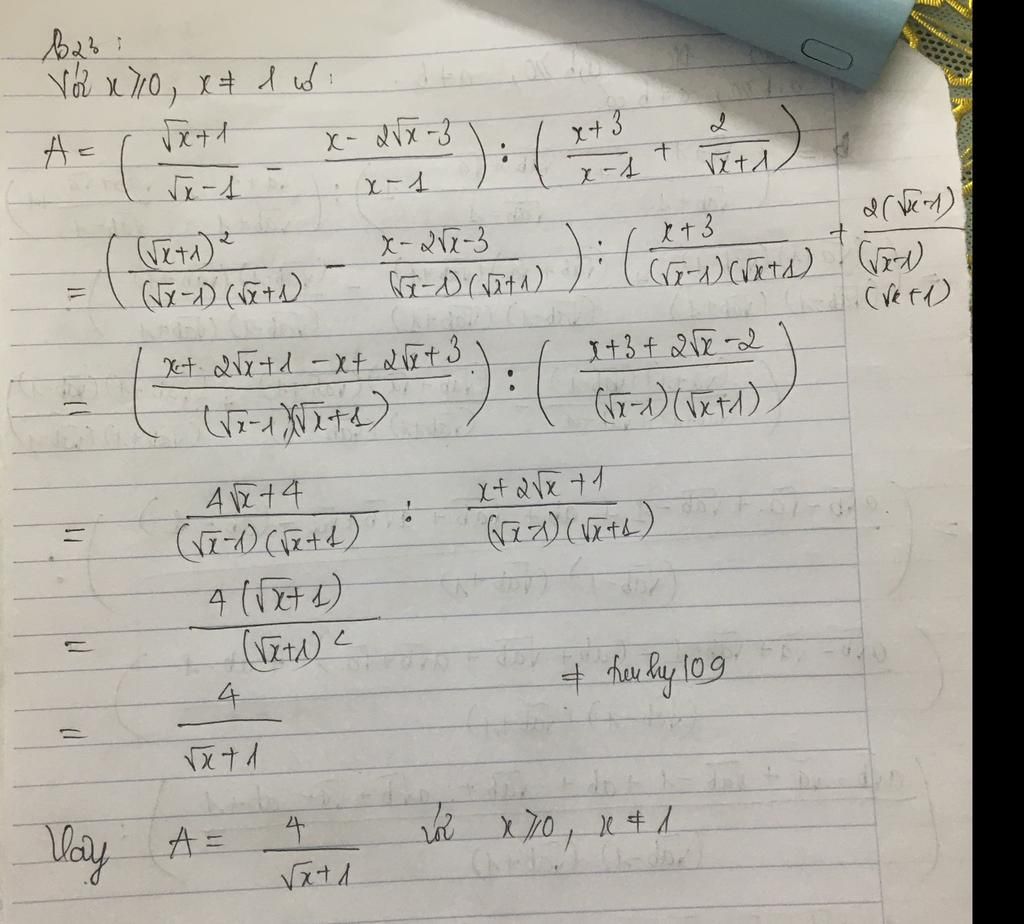 B23:
Với x ≥ 0, x ≠ 1 có:
A = ( (√x+1)/(√x-1) - (x-2√x-3)/(x-1) ) : ( (x+3)/(x-1) + 2/(√x+1) )
= ( (√x+1)²/((√x-1)(√x+1)) - (x-2√x-3)/((√x-1)(√x+1)) ) : ( (x+3)/((√x-1)(√x+1)) + 2(√x-1)/((√x-1)(√x+1))
= ( (x+2√x+1-x+2√x+3)/((√x-1)(√x+1)) ) : ( (x+3+2√x-2)/((√x-1)(√x+1)) )
= (4√x+4)/((√x-1)(√x+1)) : (x+2√x+1)/((√x-1)(√x+1))
= 4(√x+1)/(√x+1)²
= 4/(√x+1)
Vậy A = 4/(√x+1) Với x ≥ 0, x ≠ 1